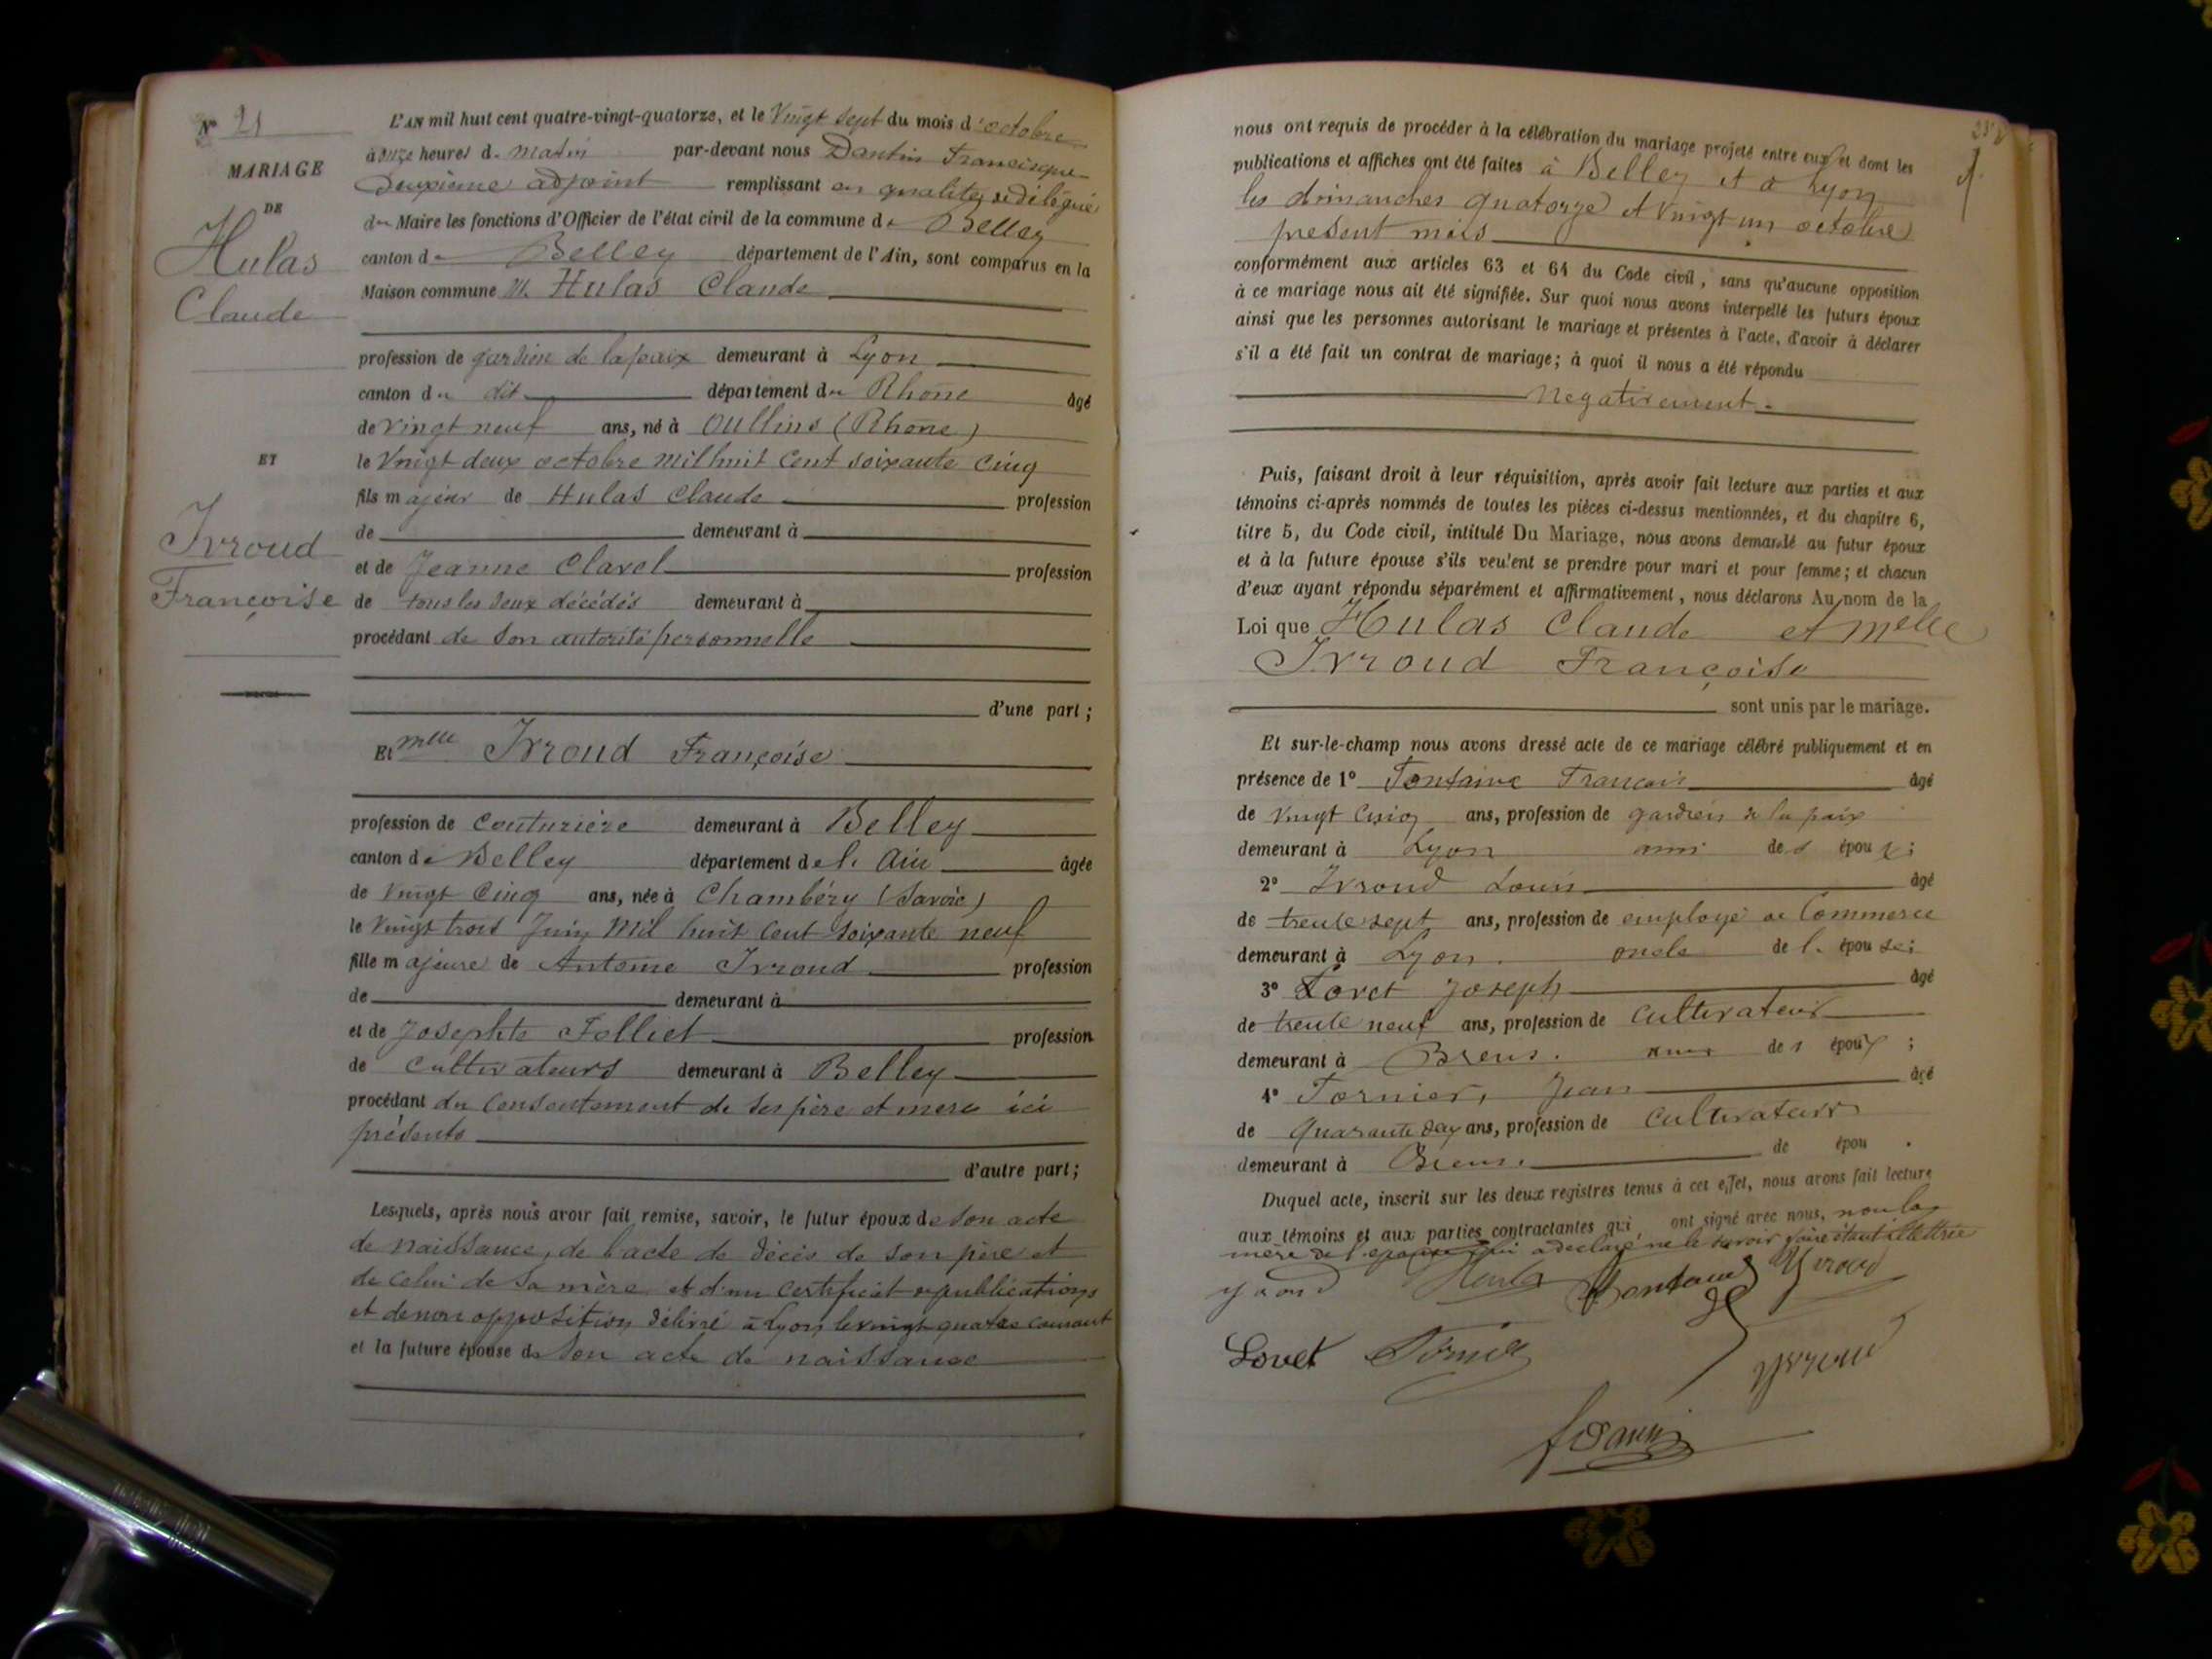 N° 21
MARIAGE
DE
Hulas
Claude
ET
Ivroud
Françoise
L'AN mil huit cent quatre-vingt-quatorze, et le Vingt sept du mois d'octobre
à onze heures d. matin par-devant nous Dantin Francisque
Deuxième adjoint remplissant en qualité de délégué
du Maire les fonctions d'Officier de l'état civil de la commune de Belley
canton de Belley département de l'Ain, sont comparus en la
Maison commune M. Hulas Claude
profession de gardien de la paix demeurant à Lyon
canton du dit département du Rhône âgé
de vingt neuf ans, né à Oullins (Rhône)
le Vingt deux octobre mil huit cent soixante cinq
fils majeur de Hulas Claude profession
de demeurant à
et de Jeanne Clavel profession
de tous les deux décédés demeurant à
procédant de son autorité personnelle
d'une part ;
Et Melle Ivroud Françoise
profession de Couturière demeurant à Belley
canton de Belley département de l' Ain âgée
de Vingt Cinq ans, née à Chambéry (Savoie)
le Vingt trois Juin Mil huit Cent Soixante neuf
fille majeure de Antoine Ivroud profession
de demeurant à
et de Josephte Folliet profession
de Cultivateurs demeurant à Belley
procédant du Consentement de ses père et mère ici
présents
d'autre part ;
Lesquels, après nous avoir fait remise, savoir, le futur époux de son acte
de naissance, de l'acte de décès de son père et
de celui de sa mère et d'un certificat de publications
et de non opposition délivré à Lyon le vingt quatre courant
et la future épouse de son acte de naissance
nous ont requis de procéder à la célébration du mariage projeté entre eux et dont les
publications et affiches ont été faites à Belley et à Lyon
les dimanches quatorze et vingt un octobre
présent mois
conformément aux articles 63 et 64 du Code civil, sans qu'aucune opposition
à ce mariage nous ait été signifiée. Sur quoi nous avons interpellé les futurs époux
ainsi que les personnes autorisant le mariage et présentes à l'acte, d'avoir à déclarer
s'il a été fait un contrat de mariage ; à quoi il nous a été répondu
Negativement.
Puis, faisant droit à leur réquisition, après avoir fait lecture aux parties et aux
témoins ci-après nommés de toutes les pièces ci-dessus mentionnées, et du chapitre 6,
titre 5, du Code civil, intitulé Du Mariage, nous avons demandé au futur époux
et à la future épouse s'ils veulent se prendre pour mari et pour femme ; et chacun
d'eux ayant répondu séparément et affirmativement, nous déclarons Au nom de la
Loi que Hulas Claude et Melle
Ivroud Françoise
sont unis par le mariage.
Et sur-le-champ nous avons dressé acte de ce mariage célébré publiquement et en
présence de 1° Fontaine François âgé
de vingt cinq ans, profession de gardien de la paix
demeurant à Lyon ami des époux ;
2° Ivroud Louis âgé
de trente sept ans, profession de employé de Commerce
demeurant à Lyon. oncle de l. épouse ;
3° Lovet Joseph âgé
de trente neuf ans, profession de Cultivateur
demeurant à Brens. amis des époux ;
4° Tornier, Jean âgé
de quarante six ans, profession de Cultivateurs
demeurant à Brens. de épou .
Duquel acte, inscrit sur les deux registres tenus à cet effet, nous avons fait lecture
aux témoins et aux parties contractantes qui ont signé avec nous, non la
mère de l'épouse qui a déclaré ne le savoir faire étant illettrée
Hulas Fontaine
Lovet Tornier